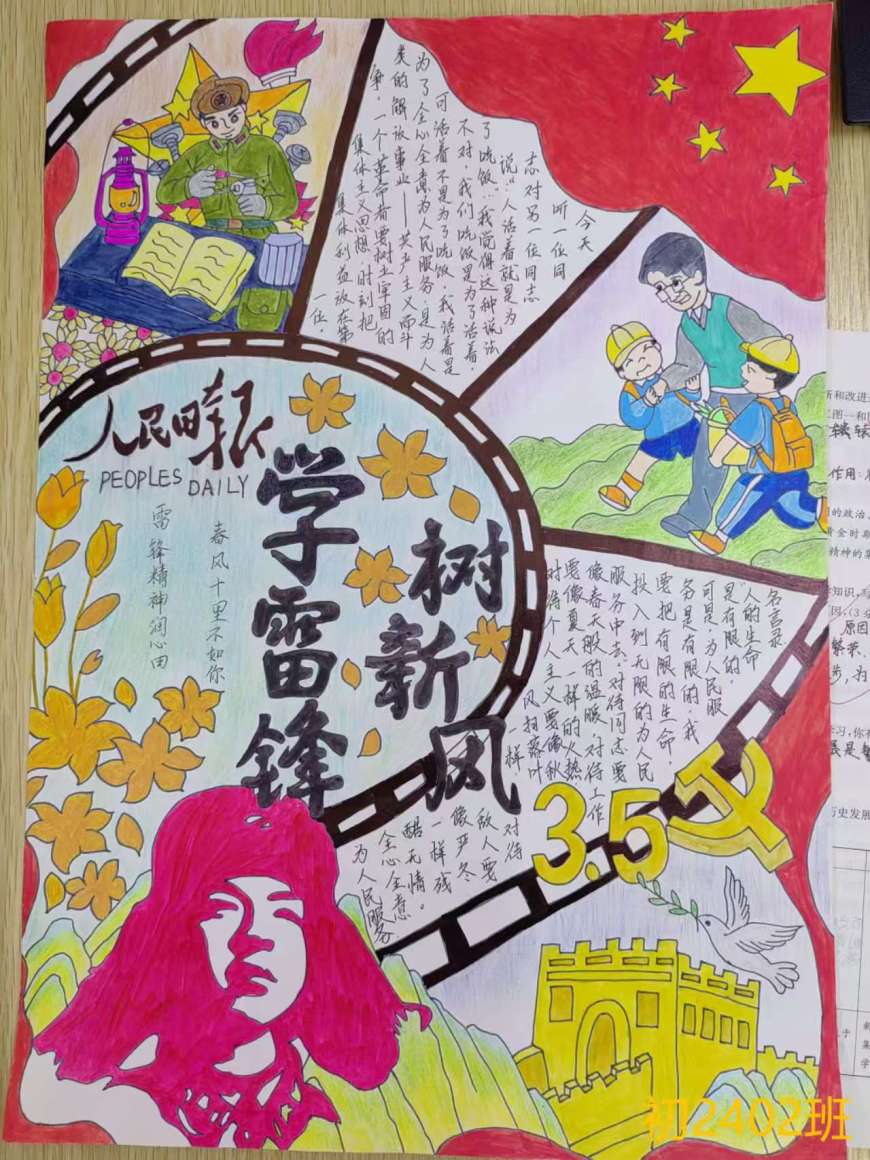 今天
听一位同
志对另一位同志
说“人活着就是为
了吃饭…我觉得这种说法
不对，我们吃饭是为了活着，
可活着不是为了吃饭，我活着是
为了全心全意为人民服务，是为人
类的解放事业——共产主义而斗
争，一个革命者要树立牢固的
集体主义思想，时刻把
集体利益放在第
一位，
人民日报
PEOPLES DAILY
学雷锋
树新风
春风十里不如你
雷锋精神润心田
名言录
“人的生命
是有限的，
可是，为人民服
务是有限的，我
要把有限的生命，
投入到无限的为人民
服务中去，对待同志要
像春天般的温暖，对待工作
要像夏天一样的火热
对待个人主义要像秋
风扫落叶
一样
对待
敌人要
像严冬
一样残
酷无情。
全心全意
为人民服务
3.5
所和改进
作用：
的政治、
黄金时期
精神的集
知识，写
原因
繁荣、
步，为
学习，你有
历史发展
初2402班